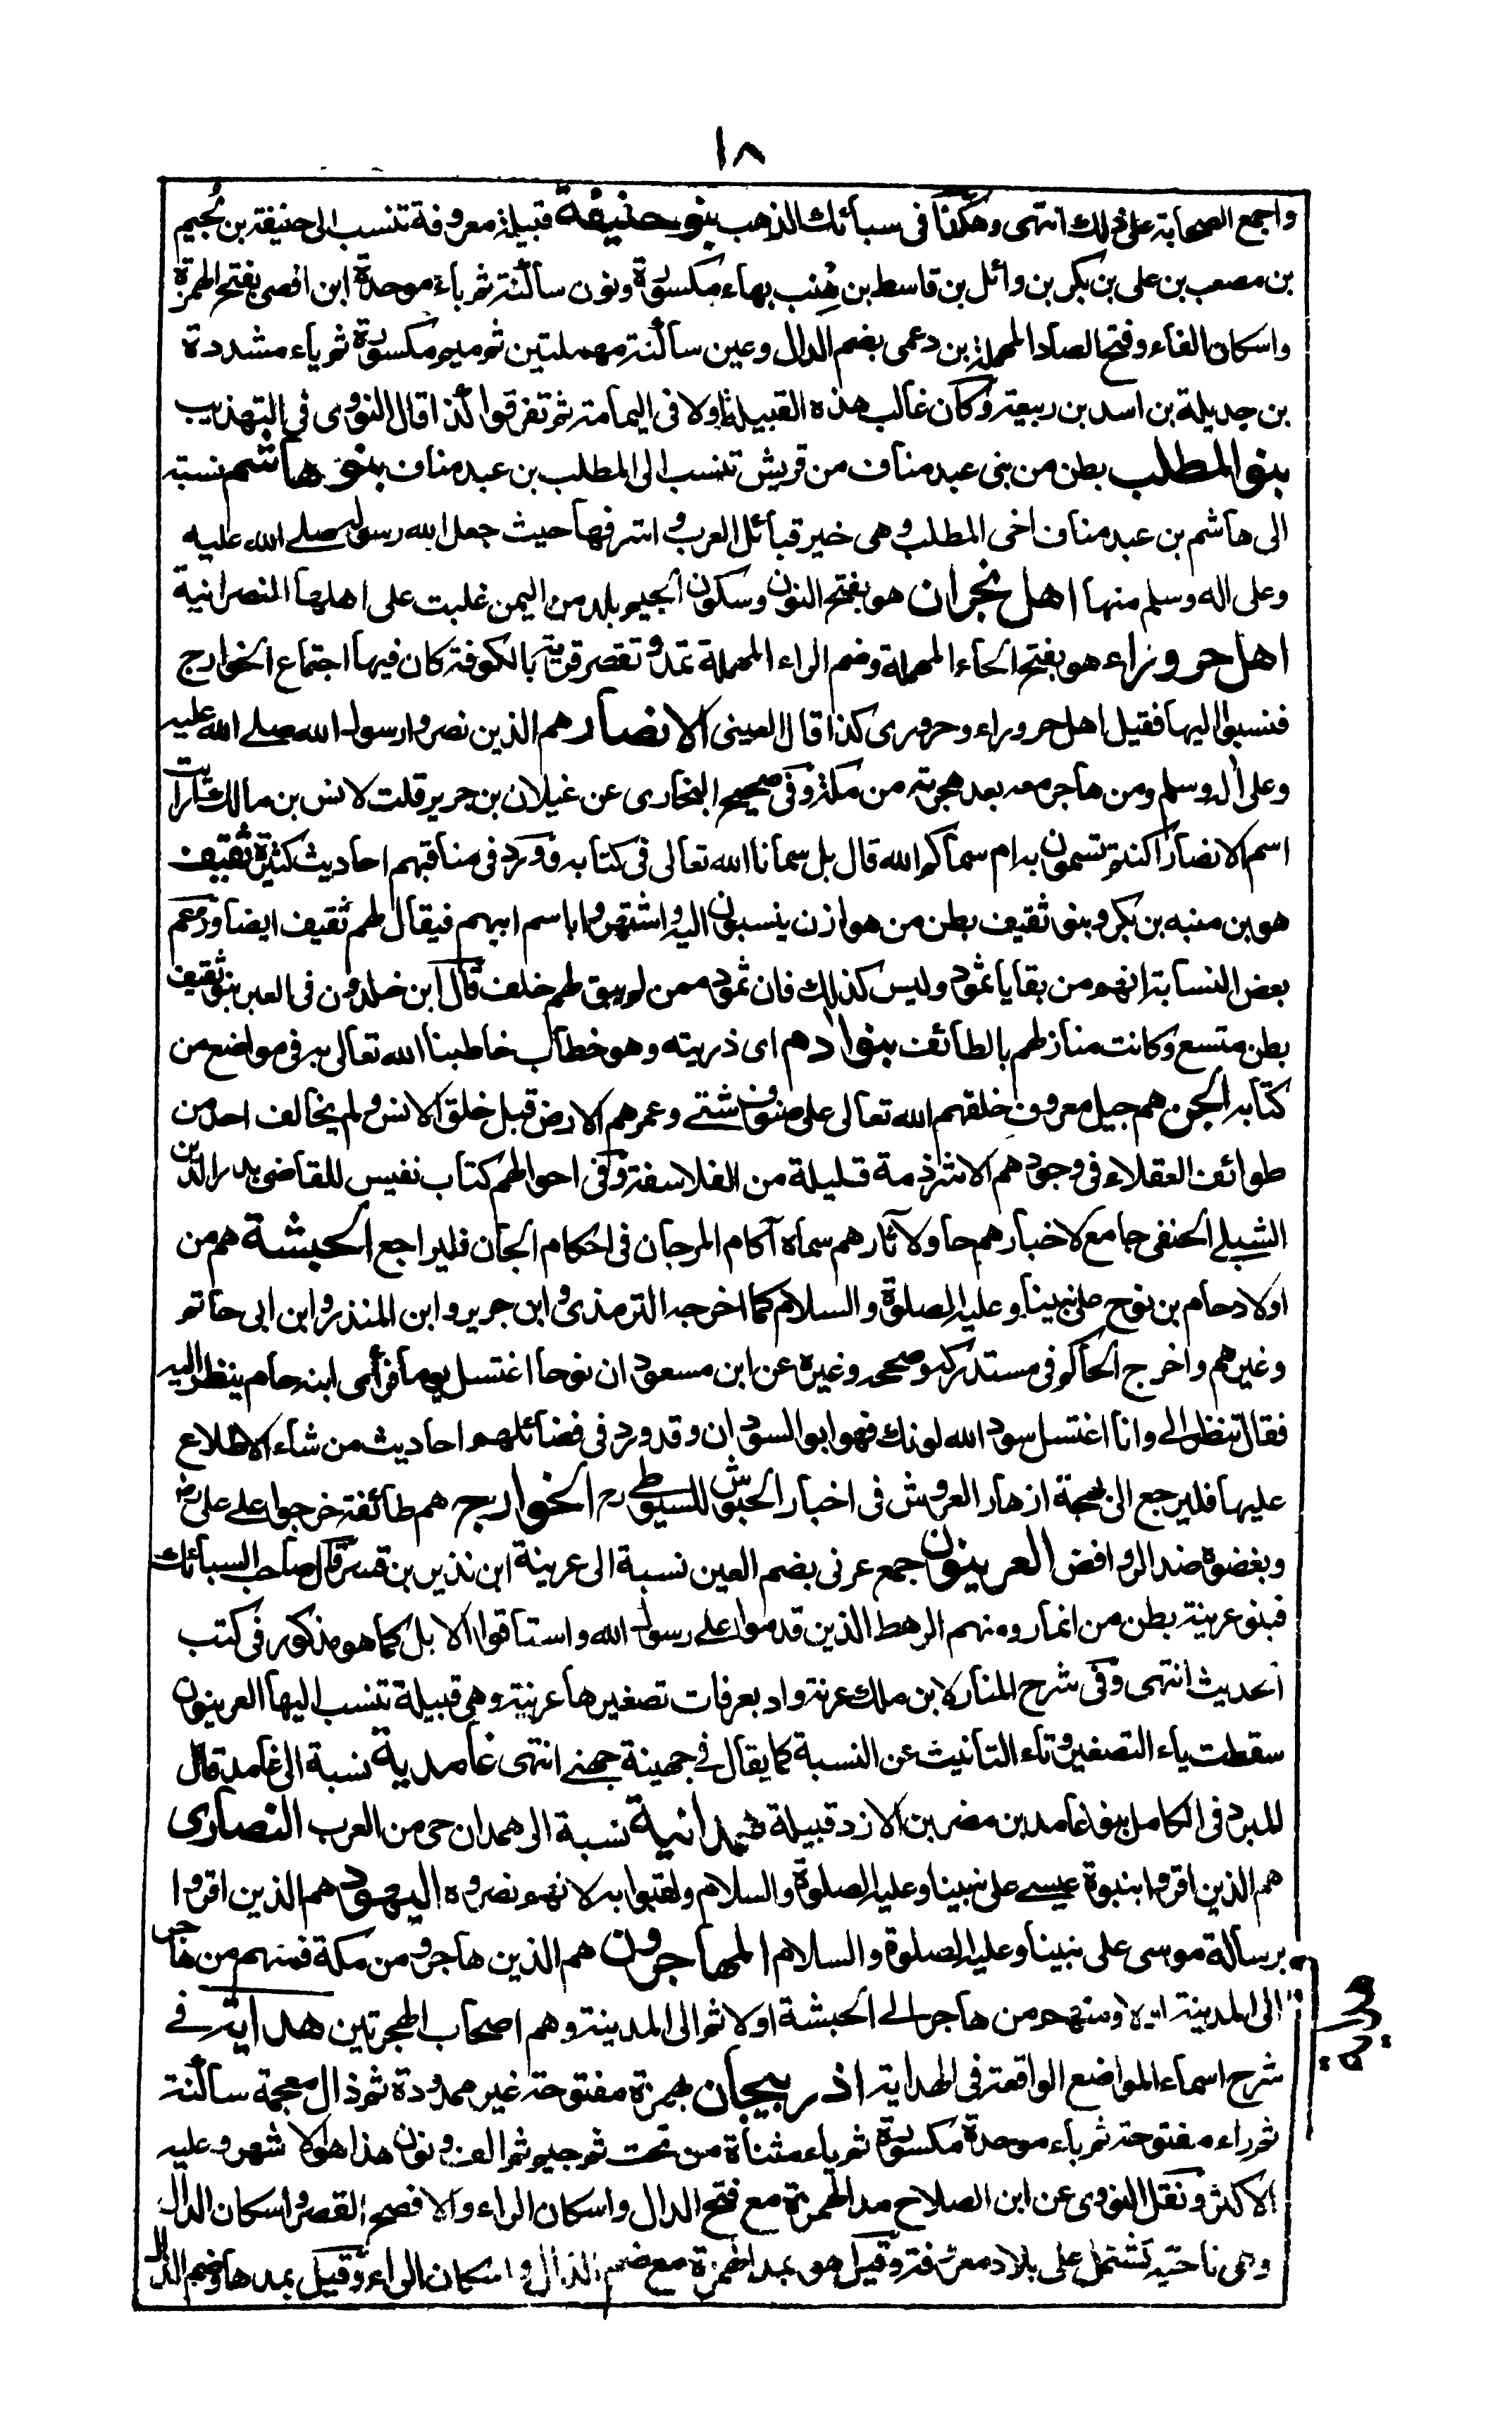 ١٨
واجمع الصحابة على ذلك انتهى وهكذا فى سبائك الذهب بنو حنيفة قبيلة معروفة تنسب الى حنيفة بن لجيم
بن مصعب بن على بن بكر بن وائل بن قاسط بن هِنب بهاء مكسورة ونون ساكنة ثم باء موحدة ابن افصى بفتح الهمزة
واسكان الفاء وفتح الصاد المهملة بن دعمى بضم الدال وعين ساكنة مهملتين ثم ميم مكسورة ثم ياء مشددة
بن جديلة بن اسد بن ربيعة وكان غالب هذه القبيلة اولا فى اليمامة ثم تفرقوا كذا قال النووى فى التهذيب
بنو المطلب بطن من بنى عبد مناف من قريش تنسب الى المطلب بن عبد مناف بنو هاشم نسبة
الى هاشم بن عبد مناف اخى المطلب وهى خير قبائل العرب واشرفها حيث جعل الله رسوله صلى الله عليه
وعلى اله وسلم منها اهل نجران هو بفتح النون وسكون الجيم بلد من اليمن غلبت على اهلها النصرانية
اهل حروراء هو بفتح الحاء المهملة وضم الراء المهملة تمد وتقصر قرية بالكوفة كان فيها اجتماع الخوارج
فنسبوا اليها فقيل اهل حروراء وحرورى كذا قال العينى الانصار هم الذين نصروا رسول الله صلى الله عليه
وعلى اله وسلم ومن هاجر معه بعد هجرته من مكة وفى صحيح البخارى عن غيلان بن جرير قلت لانس بن مالك ارايت
اسم الانصار اكنتم تسمون به ام سماكم الله قال بل سمانا الله تعالى فى كتابه وورد فى مناقبهم احاديث كثيرة ثقيف
هو بن منبه بن بكر وبنو ثقيف بطن من هوازن ينسبون اليه واشتهروا باسم ابيهم فيقال لهم ثقيف ايضا وزعم
بعض النسابة انهم من بقايا ثمود وليس كذلك فان ثمود ممن لم يبق لهم خلف قال ابن خلدون فى العبر بنو ثقيف
بطن متسع وكانت منازلهم بالطائف بنو ادم اى ذريته وهو خطاب خاطبنا الله تعالى به فى مواضع من
كتابه الجن هم جيل معروف خلقهم الله تعالى على صنوف شتى وعمرهم الارض قبل خلق الانس ولم يخالف احد من
طوائف العقلاء فى وجودهم الا شرذمة قليلة من الفلاسفة وفى احوالهم كتاب نفيس للقاضى بدر الدين
الشبلى الحنفى جامع لاخبارهم حاو لآثارهم سماه آكام المرجان فى احكام الجان فليراجع الحبشة هم من
اولاد حام بن نوح على نبينا وعليه الصلوة والسلام كما اخرجه الترمذى وابن جرير وابن المنذر وابن ابى حاتم
وغيرهم واخرج الحاكم فى مستدركه وصححه وغيره عن ابن مسعود ان نوحا اغتسل يوما فرأى ابنه حام ينظر اليه
فقال تنظر الى وانا اغتسل سود الله لونك فهو ابو السودان وقد ورد فى فضائلهم احاديث من شاء الاطلاع
عليها فليرجع الى ازهار العروش فى اخبار الحبوش للسيوطى رح الخوارج هم طائفة خرجوا على على رض
وبغضوه ضد الروافض العرينون جمع عرنى بضم العين نسبة الى عرينة ابن نذير بن قسر قال صاحب السبائك
فبنو عرينة بطن من انمار ومنهم الرهط الذين قدموا على رسول الله واستاقوا الابل كما هو مذكور فى كتب
الحديث انتهى وفى شرح المنار لابن ملك عرنة واد بعرفات تصغيرها عرينة وهى قبيلة تنسب اليها العرينون
سقطت ياء التصغير وتاء التانيث عن النسبة كما يقال فى جهينة جهنى انتهى غامدية نسبة الى غامد قال
المبرد فى الكامل بنو غامد بن مضر بن الازد قبيلة همدانية نسبة الى همدان حى من العرب النصارى
هم الذين اقروا بنبوة عيسى على نبينا وعليه الصلوة والسلام ولقبوا به لانهم نصروه اليهود هم الذين اقروا
برسالة موسى على نبينا وعليه الصلوة والسلام المهاجرون هم الذين هاجروا من مكة فمنهم من هاجر
الى المدينة ومنهم من هاجر الى الحبشة اولا ثم الى المدينة وهم اصحاب الهجرتين هداية فى
شرح اسماء المواضع الواقعة فى الهداية اذربيجان بهمزة مفتوحة غير ممدودة ثم ذال معجمة ساكنة
ثم راء مفتوحة ثم باء موحدة مكسورة ثم ياء مثناة من تحت ثم جيم ثم الف ونون هذا هو الاشهر وعليه
الاكثر ونقل النووى عن ابن الصلاح مد الهمزة مع فتح الدال واسكان الراء والافصح القصر واسكان الدال
وهى ناحية تشتمل على بلاد معرفة وقيل هو بمد الهمزة مع ضم الذال واسكان الراء وقيل بمدها وضم الذال